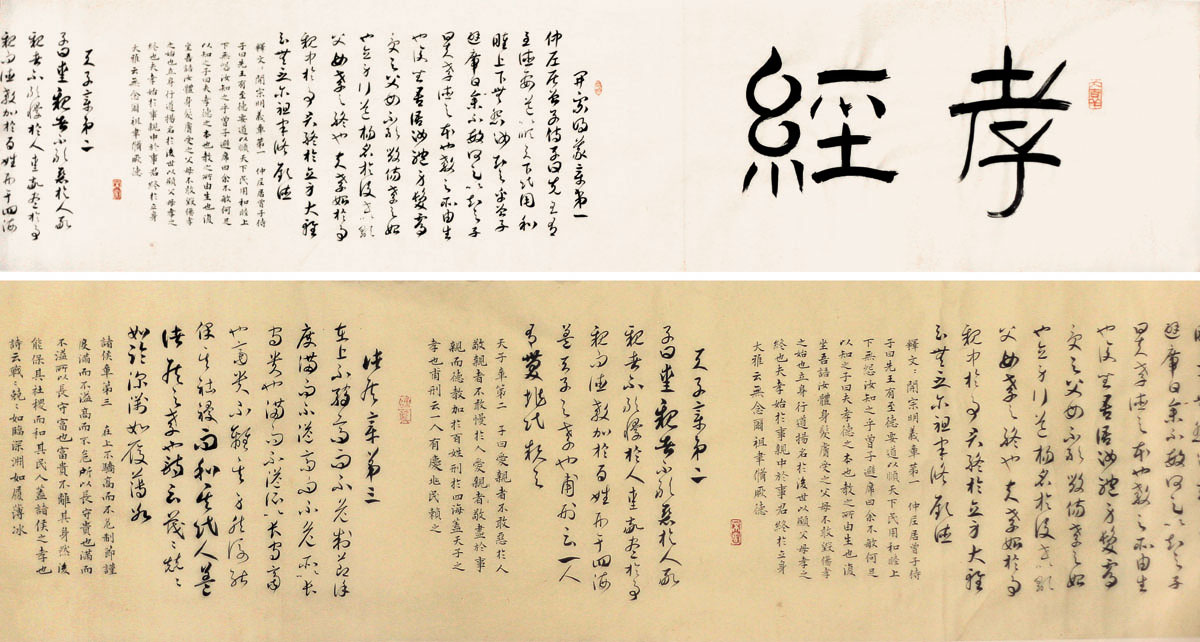 孝經
開宗明義章第一
仲尼居曾子侍子曰先王有
至德要道以順天下民用和
睦上下無怨汝知之乎曾子
避席曰參不敏何足以知之子
曰夫孝德之本也教之所由生
也復坐吾語汝體身髮膚
受之父母不敢毀傷孝之始
也立身行道揚名於後世以顯
父母孝之終也夫孝始於事
親中於事君終於立身大雅
云無念爾祖聿修厥德
釋文：開宗明義章第一 仲尼居曾子侍
子曰先王有至德要道以順天下民用和睦上
下無怨汝知之乎曾子避席曰參不敏何足
以知之子曰夫孝德之本也教之所由生也復
坐吾語汝體身髮膚受之父母不敢毀傷孝
之始也立身行道揚名於後世以顯父母孝之
終也夫孝始於事親中於事君終於立身
大雅云無念爾祖聿脩厥德
天子章第二
子曰愛親者不敢惡於人敬
親者不敢慢於人愛敬盡於事
親而德教加於百姓刑于四海
避席曰參不敏何足以知之子
曰夫孝德之本也教之所由生
也復坐吾語汝體身髮膚
受之父母不敢毀傷孝之始
也立身行道揚名於後世以顯
父母孝之終也夫孝始於事
親中於事君終於立身大雅
云無念爾祖聿修厥德
釋文：開宗明義章第一 仲尼居曾子侍
子曰先王有至德要道以順天下民用和睦上
下無怨汝知之乎曾子避席曰參不敏何足
以知之子曰夫孝德之本也教之所由生也復
坐吾語汝體身髮膚受之父母不敢毀傷孝
之始也立身行道揚名於後世以顯父母孝之
終也夫孝始於事親中於事君終於立身
大雅云無念爾祖聿脩厥德
天子章第二
子曰愛親者不敢惡於人敬
親者不敢慢於人愛敬盡於事
親而德教加於百姓刑于四海
蓋天子之孝也甫刑云一人
有慶兆民賴之
天子章第二 子曰愛親者不敢惡於人
敬親者不敢慢於人愛親者敬盡於事
親而德教加於百姓刑於四海蓋天子之
孝也甫刑云一人有慶兆民賴之
諸侯章第三
在上不驕高而不危制節謹
度滿而不溢高而不危所以長
守貴也滿而不溢所以長守富
也富貴不離其身然後能
保其社稷而和其民人蓋
諸侯之孝也詩云戰戰兢兢
如臨深淵如履薄冰
諸侯章第三 在上不驕高而不危制節謹
度滿而不溢高而不危所以長守貴也滿而
不溢所以長守富也富貴不離其身然後
能保其社稷而和其民人蓋諸侯之孝也
詩云戰戰兢兢如臨深淵如履薄冰